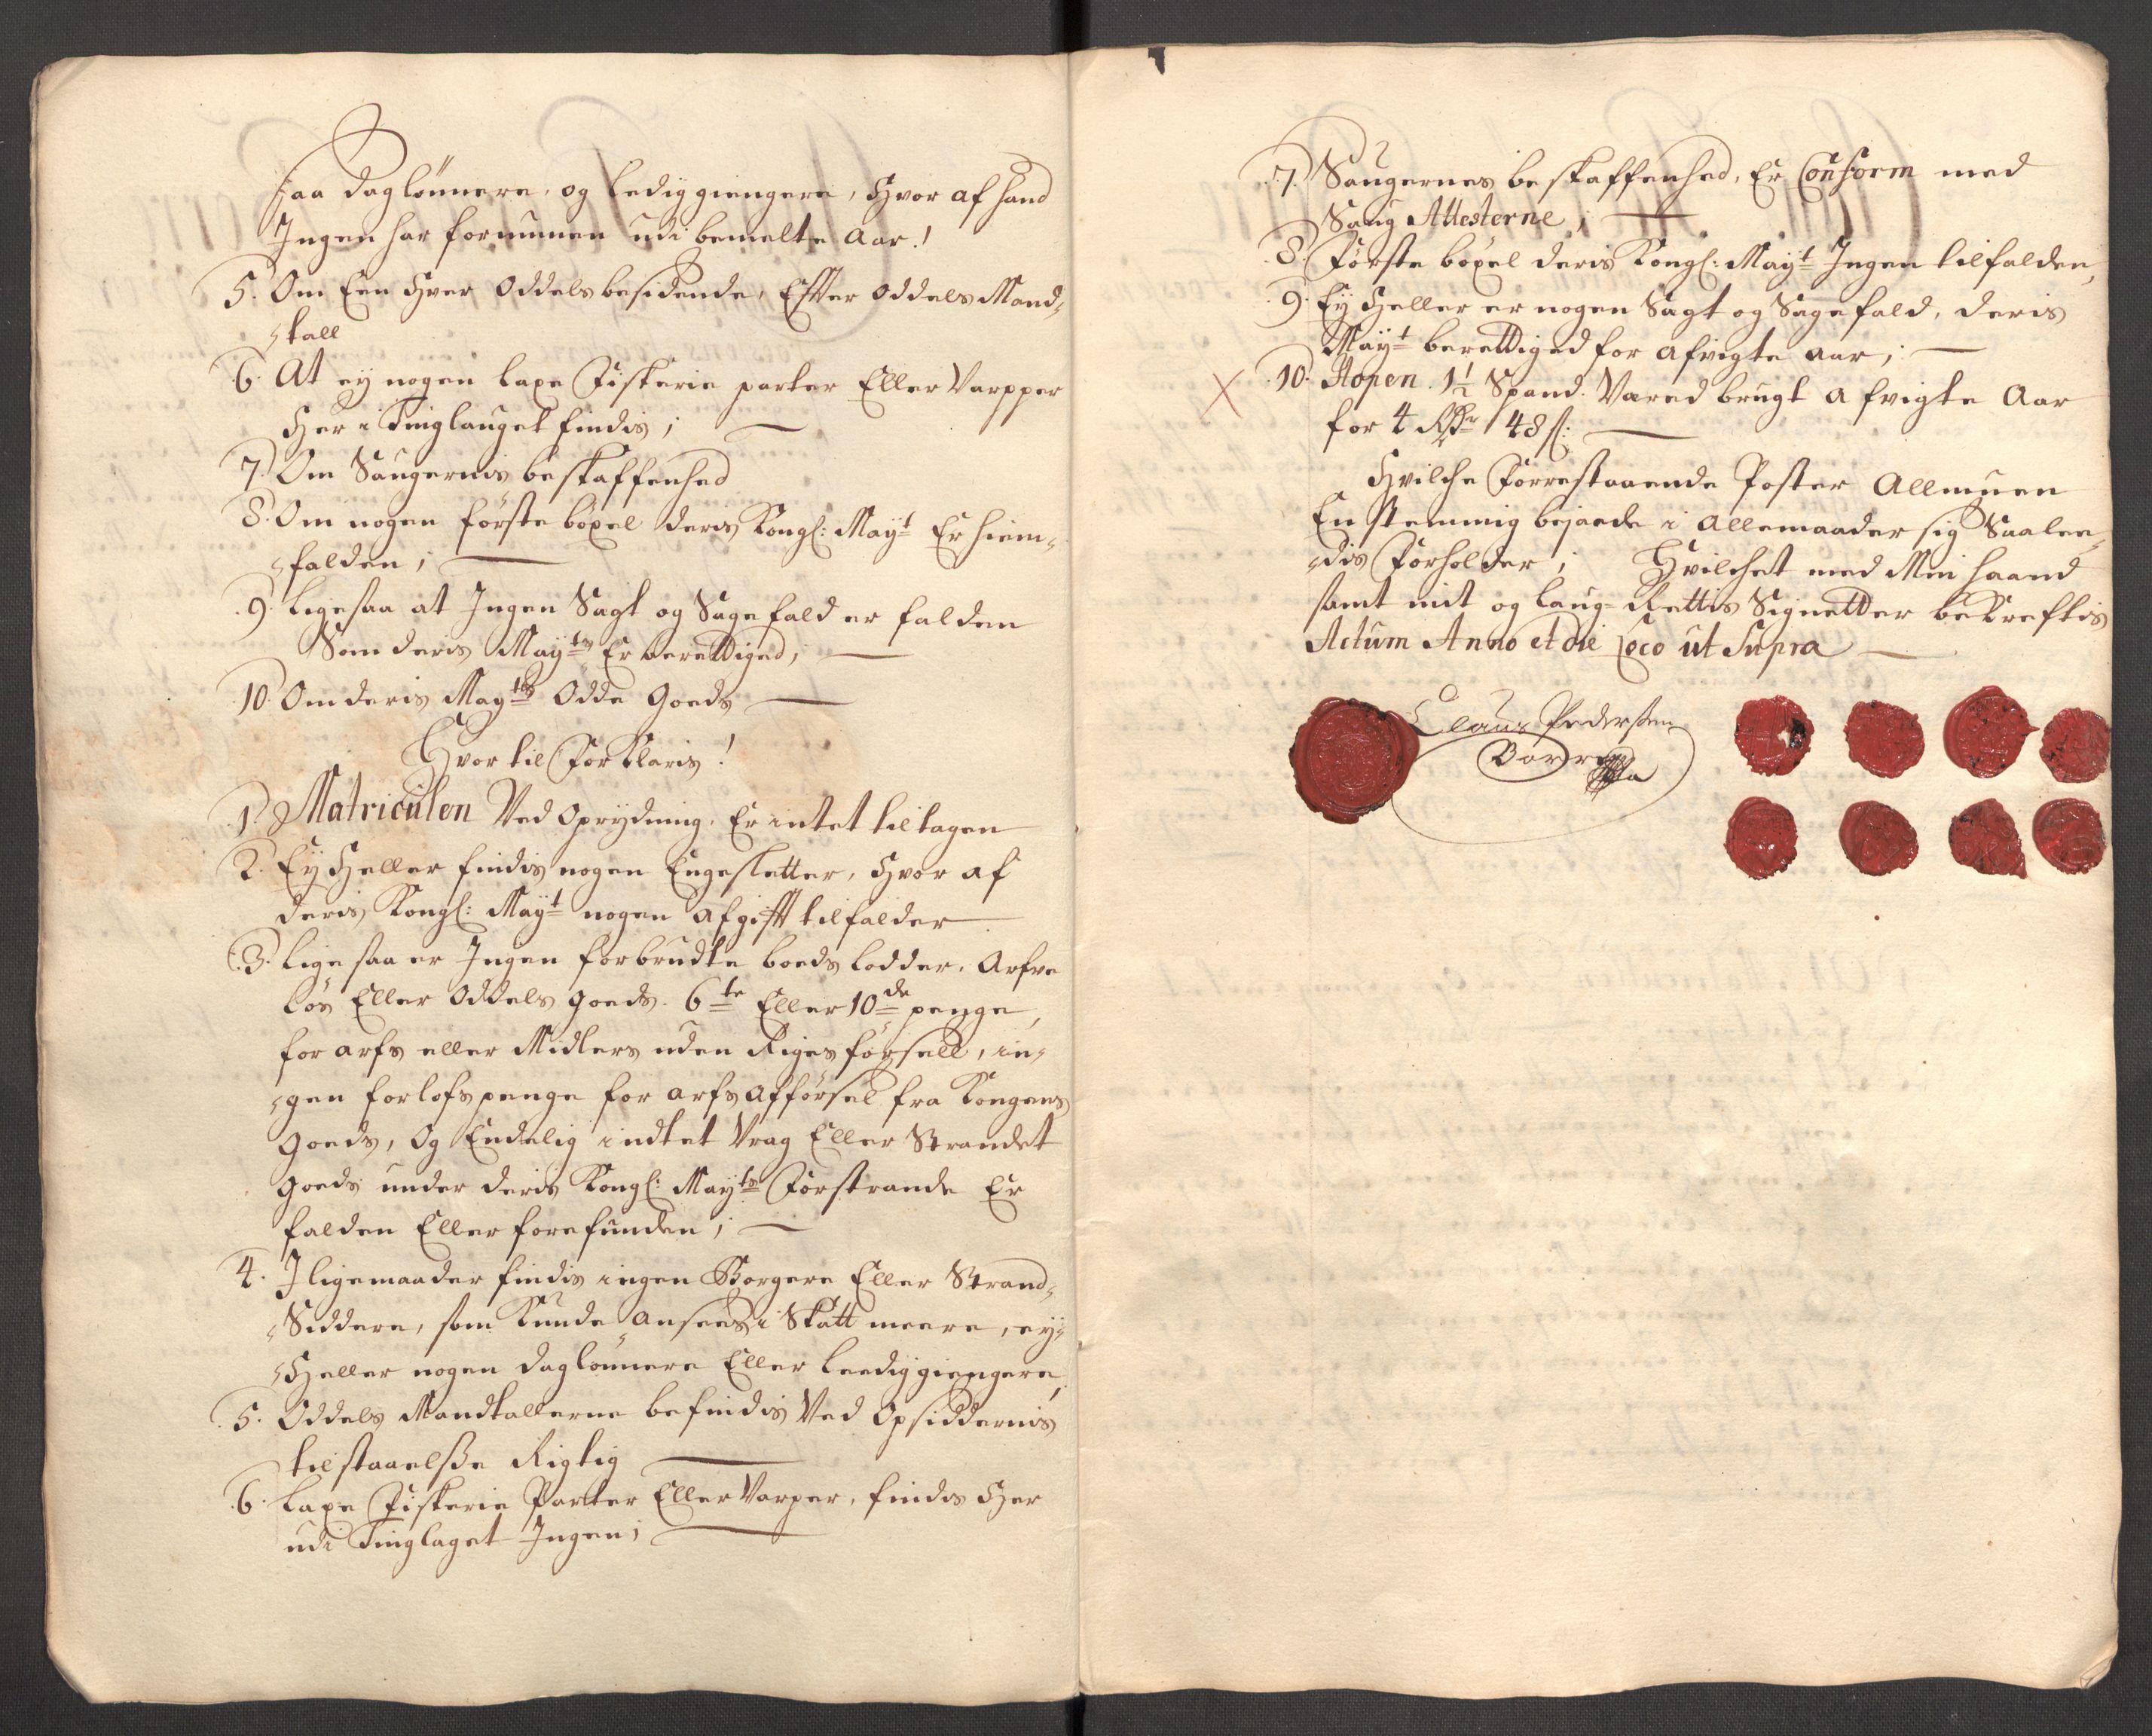 saa daglønnere, og lediggiengere, Hvor af hand
Ingen har fornummen udi bemelte Aar!
5. Om Een Hver Oddels besidende, Efter Oddels Mand-
-tall
6. At ey nogen laxe Fiskerie parter Eller Varpper
Her i Tinglauget findis;
7. Om Saugernis beskaffenhed
8. Om nogen første böxel deris Kongl: Mayt Er hiem-
-falden;
9. Ligesaa at Ingen Sagt og Sagefald er falden
Som deris Mayts Er berettiged;
10. Om deris Mayts Ödde Goeds
Hvor til Forklaris!
1. Matriculen Ved Oprydning, Er intet tiltagen
2. Ey Heller findis nogen Engesletter, Hvor af
deris Kongl: Mayt nogen afgift tilfalder
3. Lige saa er Ingen forbrudte boeds lodder, Arfve
løs Eller Oddels goeds. 6te Eller 10de penge,
for arfs eller Midlers uden Riges førsell, in-
-gen forlofs penge for arfs afførsel fra Kongens
Goeds, Og Endelig indtet Vrag Eller Strandet
goeds under deris Kongl: Mayts Forstrande Er
falden Eller forefunden;
4. I ligemaader findis ingen Borgere Eller Strand-
-Siddere, som Kunde ansees i Skatt meere, ey-
-Heller nogen daglönnere Eller leediggiengere,
5. Oddels Mandtallerne befindis Ved Opsiddernis
tilstaaelsse Rigtig
6. Laxe Fiskerie Parter Eller Varper, findis Her
udi Tinglaget Ingen;
7. Saugernes beskaffenhed, Er Conform med
Saug Attesterne;
8. Første böxel deris Kongl: Mayt Ingen tilfalden,
9. Ey Heller er nogen Sagt og Sagefald, deris
Mayt berettiged for afvigte aar;
10. Hopen. 1½ Spand. Vared brugt afvigte Aar
for 4 Rdr 48 s:
Hvilche Forrestaaende Poster Allmuen
Enstemmig bejaede i allemaader sig Saalee-
-dis Forholder; Hvilchet med Min haand
samt mit og laug-Rettis Signetter bekreftis
Actum Anno et die Loco ut Supra
Claus Pedersen